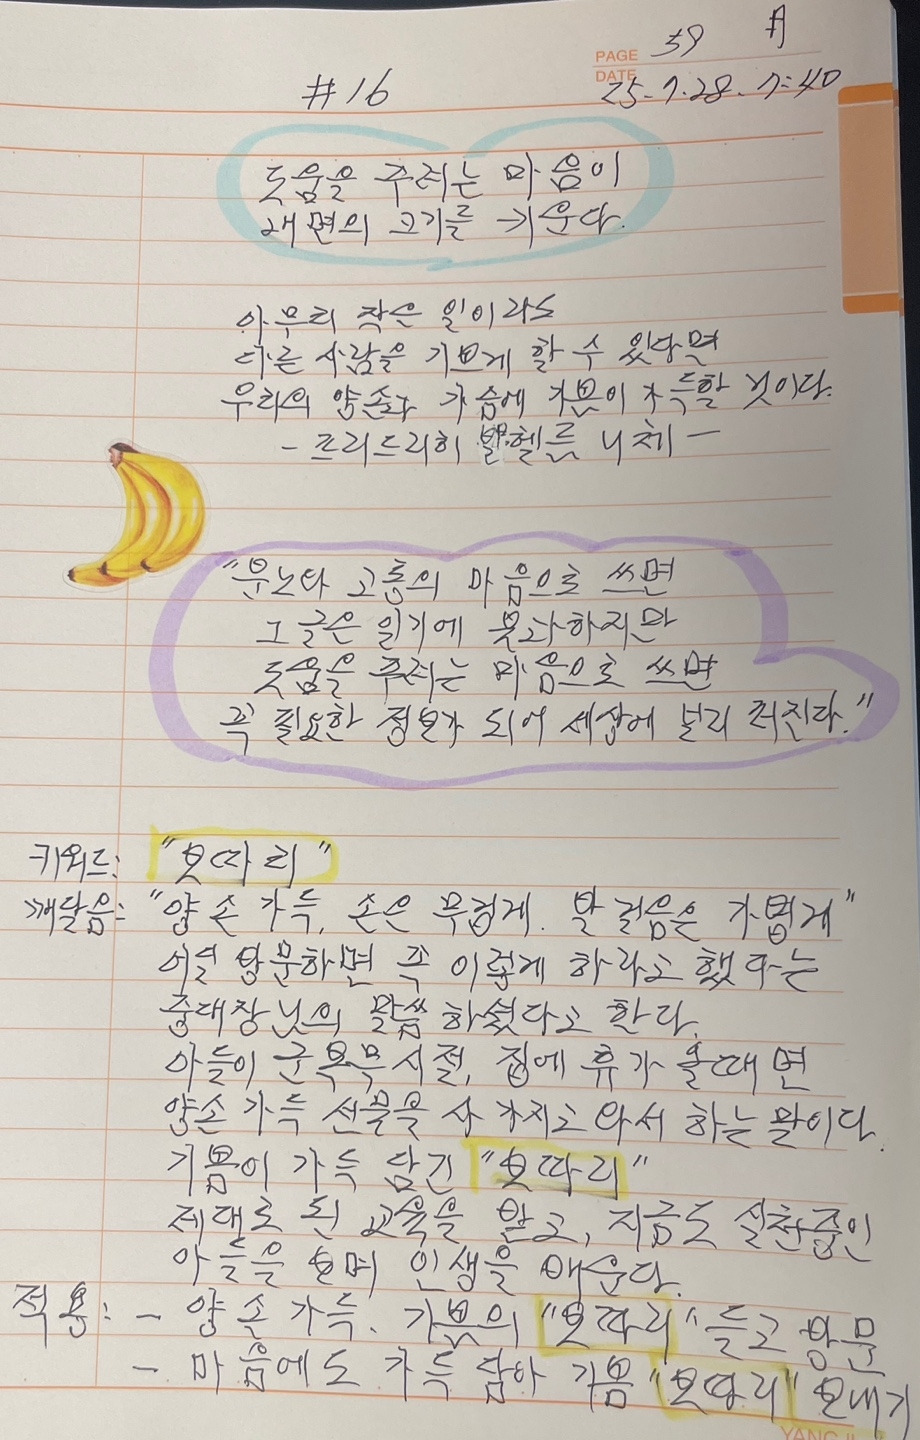 PAGE 59 月
DATE 25-7-28. 7:40
#16
도움을 주려는 마음이
내면의 크기를 키운다.
아무리 작은 일이라도
다른 사람을 기쁘게 할 수 있다면
우리의 양손과 가슴에 기쁨이 가득할 것이다.
- 프리드리히 빌헬름 니체 -
"분노와 고통의 마음으로 쓰면
그 글은 일기에 불과하지만
도움을 주려는 마음으로 쓰면
꼭 필요한 정보가 되어 세상에 널리 퍼진다."
키워드: "보따리"
깨달음: "양손 가득, 손은 무겁게. 발걸음은 가볍게"
어딜 방문하면 꼭 이렇게 하라고 했다는
중대장님의 말씀 하셨다고 한다.
아들이 군복무 시절, 집에 휴가 올때면
양손 가득 선물을 사 가지고 와서 하는 말이다.
기쁨이 가득 담긴 "보따리"
제대로 된 교육을 받고, 지금도 실천중인
아들을 보며 인생을 배운다.
적용: - 양손 가득. 기쁨의 "보따리" 들고 방문
- 마음에도 가득 담아 기쁨 "보따리" 보내기